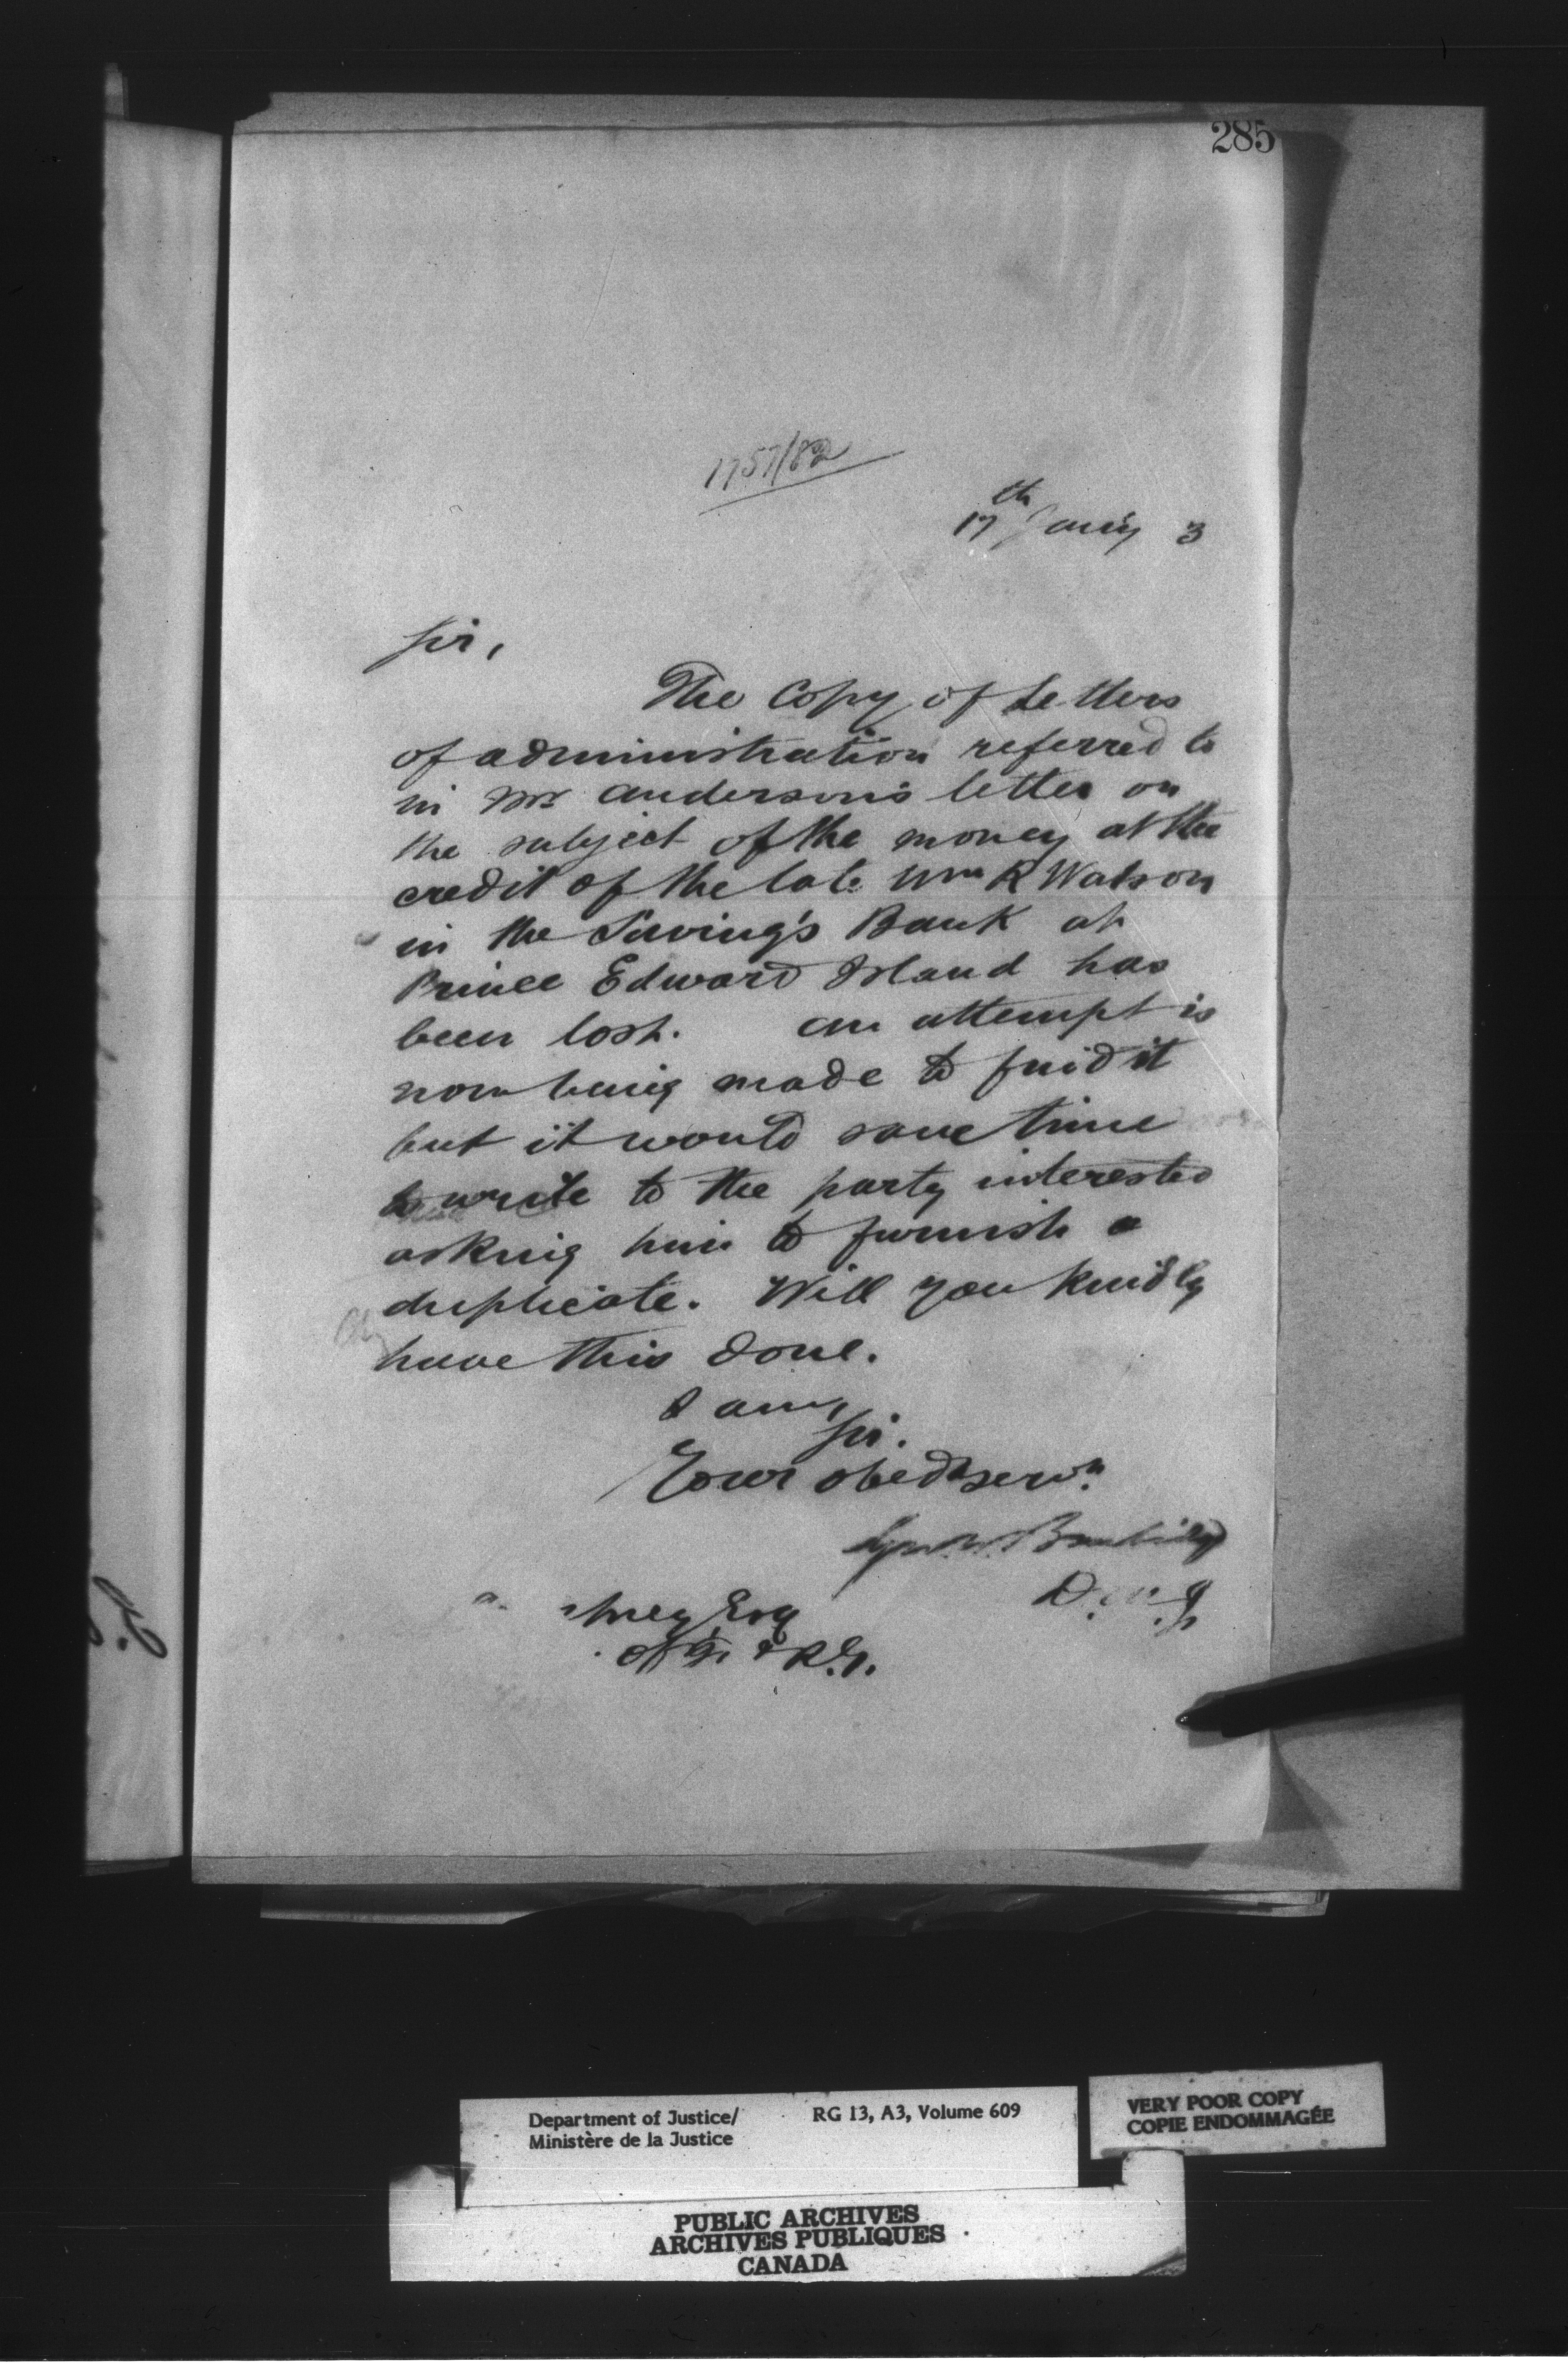 285
1757/82
17th Jany 3
Sir,
The Copy of Letters
of administration referred to
in Mr Anderson's letter on
the subject of the money at the
credit of the late Wm R Watson
in the Saving's Bank at
Prince Edward Island has
been lost. An attempt is
now being made to find it
but it would save time
to write to the party interested
asking him to furnish a
duplicate. Will you kindly
have this done.
I am,
Sir.
Your obedt servt
Geo. W. Burbidge
D.M.J.
Esq
Department of Justice/ RG 13, A3, Volume 609
Ministère de la Justice
VERY POOR COPY
COPIE ENDOMMAGÉE
PUBLIC ARCHIVES
ARCHIVES PUBLIQUES
CANADA